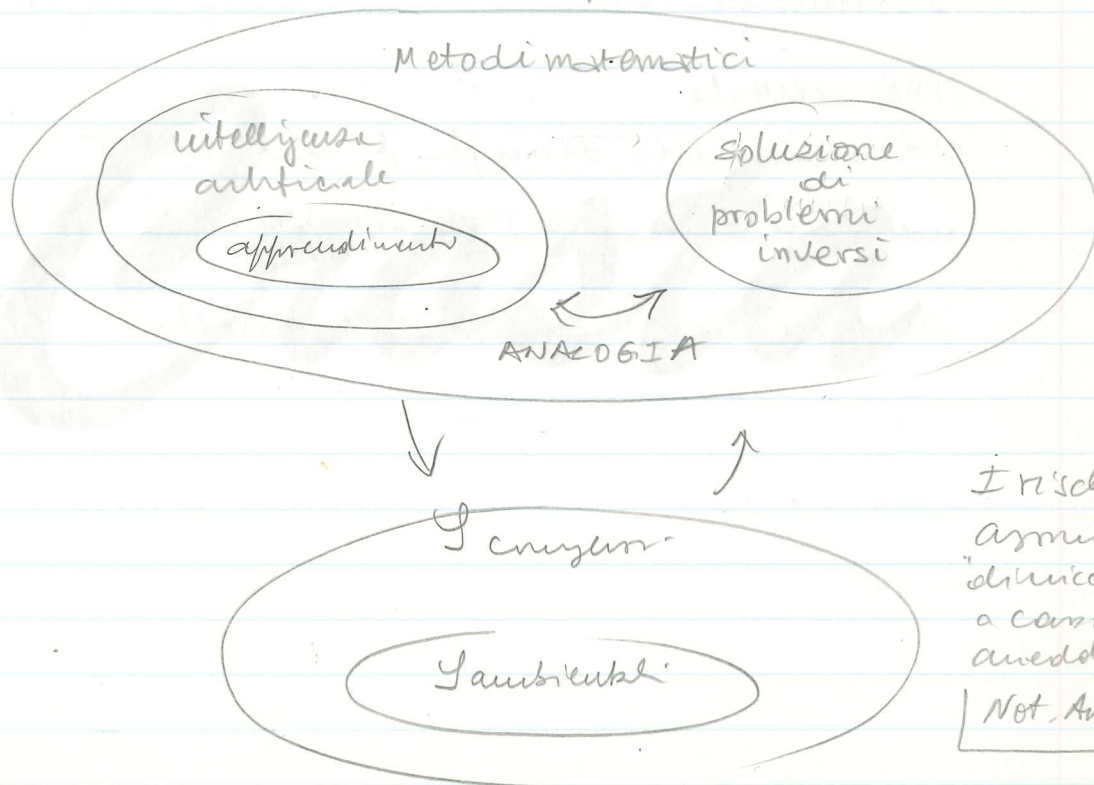 Metodi matematici
intelligenza
artificiale
apprendimento
soluzione
di
problemi
inversi
ANALOGIA
S
S ambientali
I risc
a
aned
Not. A